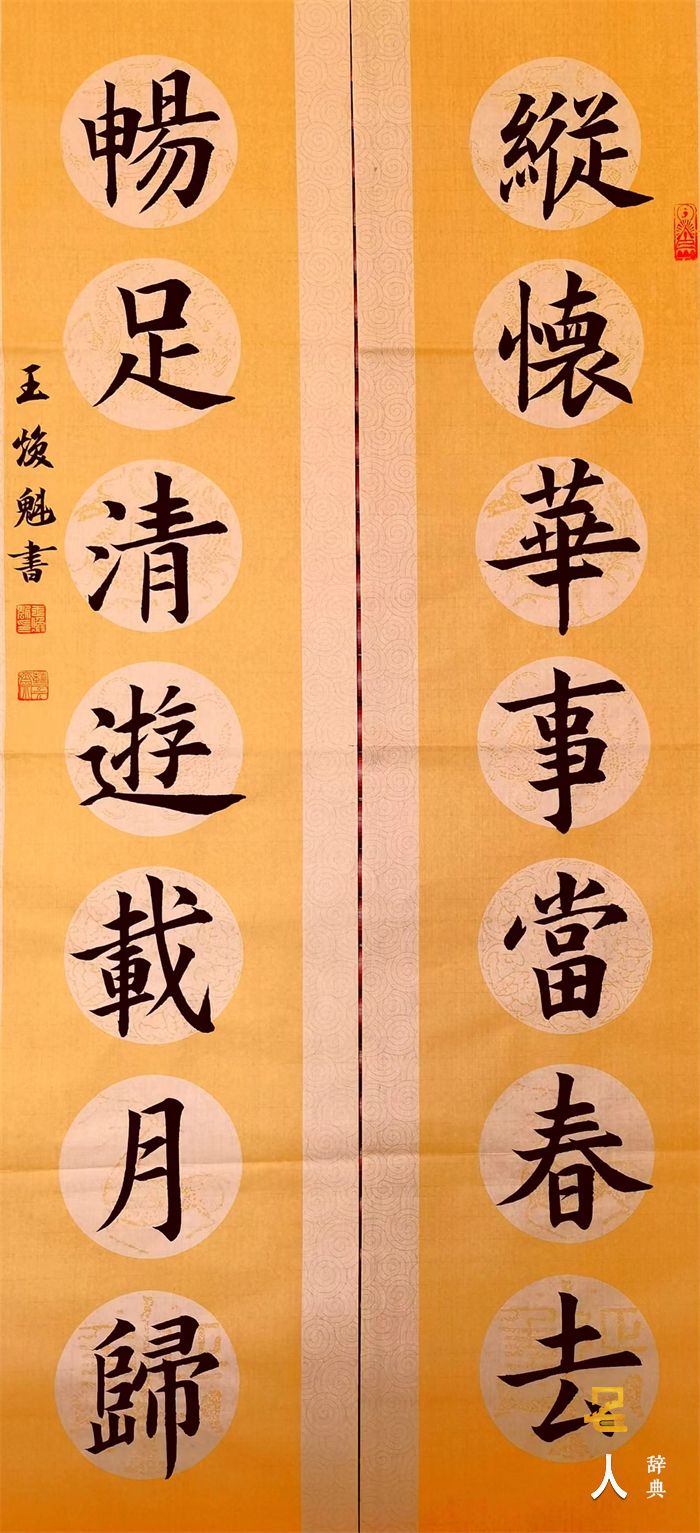 縱懷華事當春去
暢足清遊載月歸
王煥魁書
名人
辞典